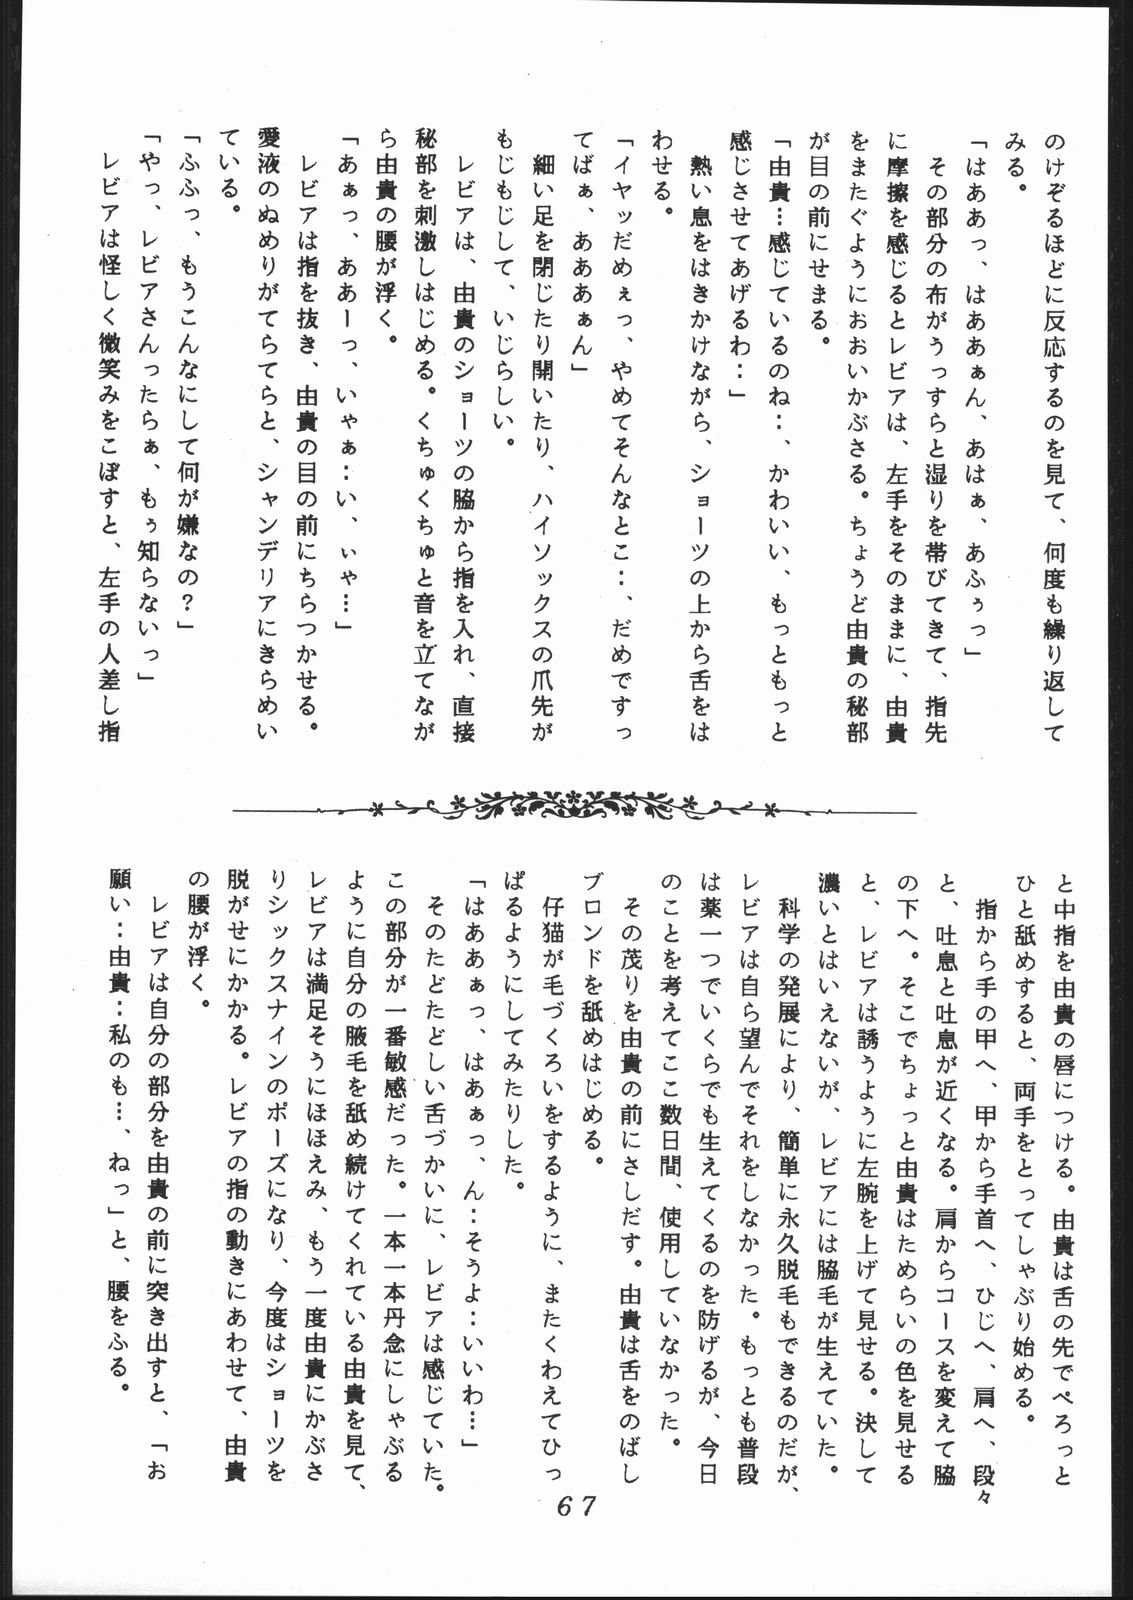 のけぞるほどに反応するのを見て、何度も繰り返して
みる。
「はああっ、はああぁん、あはぁ、あふぅっ」
その部分の布がうっすらと湿りを帯びてきて、指先
に摩擦を感じるとレビアは、左手をそのままに、由貴
をまたぐようにおおいかぶさる。ちょうど由貴の秘部
が目の前にせまる。
「由貴…感じているのね‥、かわいい、もっともっと
感じさせてあげるわ‥」
熱い息をはきかけながら、ショーツの上から舌をは
わせる。
「イヤッだめぇっ、やめてそんなとこ‥、だめですっ
てばぁ、あああぁん」
細い足を閉じたり開いたり、ハイソックスの爪先が
もじもじして、いじらしい。
レビアは、由貴のショーツの脇から指を入れ、直接
秘部を刺激しはじめる。くちゅくちゅと音を立てなが
ら由貴の腰が浮く。
「あぁっ、ああーっ、いゃぁ‥い、ぃゃ…」
レビアは指を抜き、由貴の目の前にちらつかせる。
愛液のぬめりがてらてらと、シャンデリアにきらめい
ている。
「ふふっ、もうこんなにして何が嫌なの？」
「やっ、レビアさんったらぁ、もぅ知らないっ」
レビアは怪しく微笑みをこぼすと、左手の人差し指
と中指を由貴の唇につける。由貴は舌の先でぺろっと
ひと舐めすると、両手をとってしゃぶり始める。
指から手の甲へ、甲から手首へ、ひじへ、肩へ、段々
と、吐息と吐息が近くなる。肩からコースを変えて脇
の下へ。そこでちょっと由貴はためらいの色を見せる
と、レビアは誘うように左腕を上げて見せる。決して
濃いとはいえないが、レビアには脇毛が生えていた。
科学の発展により、簡単に永久脱毛もできるのだが、
レビアは自ら望んでそれをしなかった。もっとも普段
は薬一つでいくらでも生えてくるのを防げるが、今日
のことを考えてここ数日間、使用していなかった。
その茂りを由貴の前にさしだす。由貴は舌をのばし
ブロンドを舐めはじめる。
仔猫が毛づくろいをするように、またくわえてひっ
ぱるようにしてみたりした。
「はああぁっ、はあぁっ、ん‥そうよ‥いいわ…」
そのたどたどしい舌づかいに、レビアは感じていた。
この部分が一番敏感だった。一本一本丹念にしゃぶる
ように自分の腋毛を舐め続けてくれている由貴を見て、
レビアは満足そうにほほえみ、もう一度由貴にかぶさ
りシックスナインのポーズになり、今度はショーツを
脱がせにかかる。レビアの指の動きにあわせて、由貴
の腰が浮く。
レビアは自分の部分を由貴の前に突き出すと、「お
願い‥由貴‥私のも…、ねっ」と、腰をふる。
67